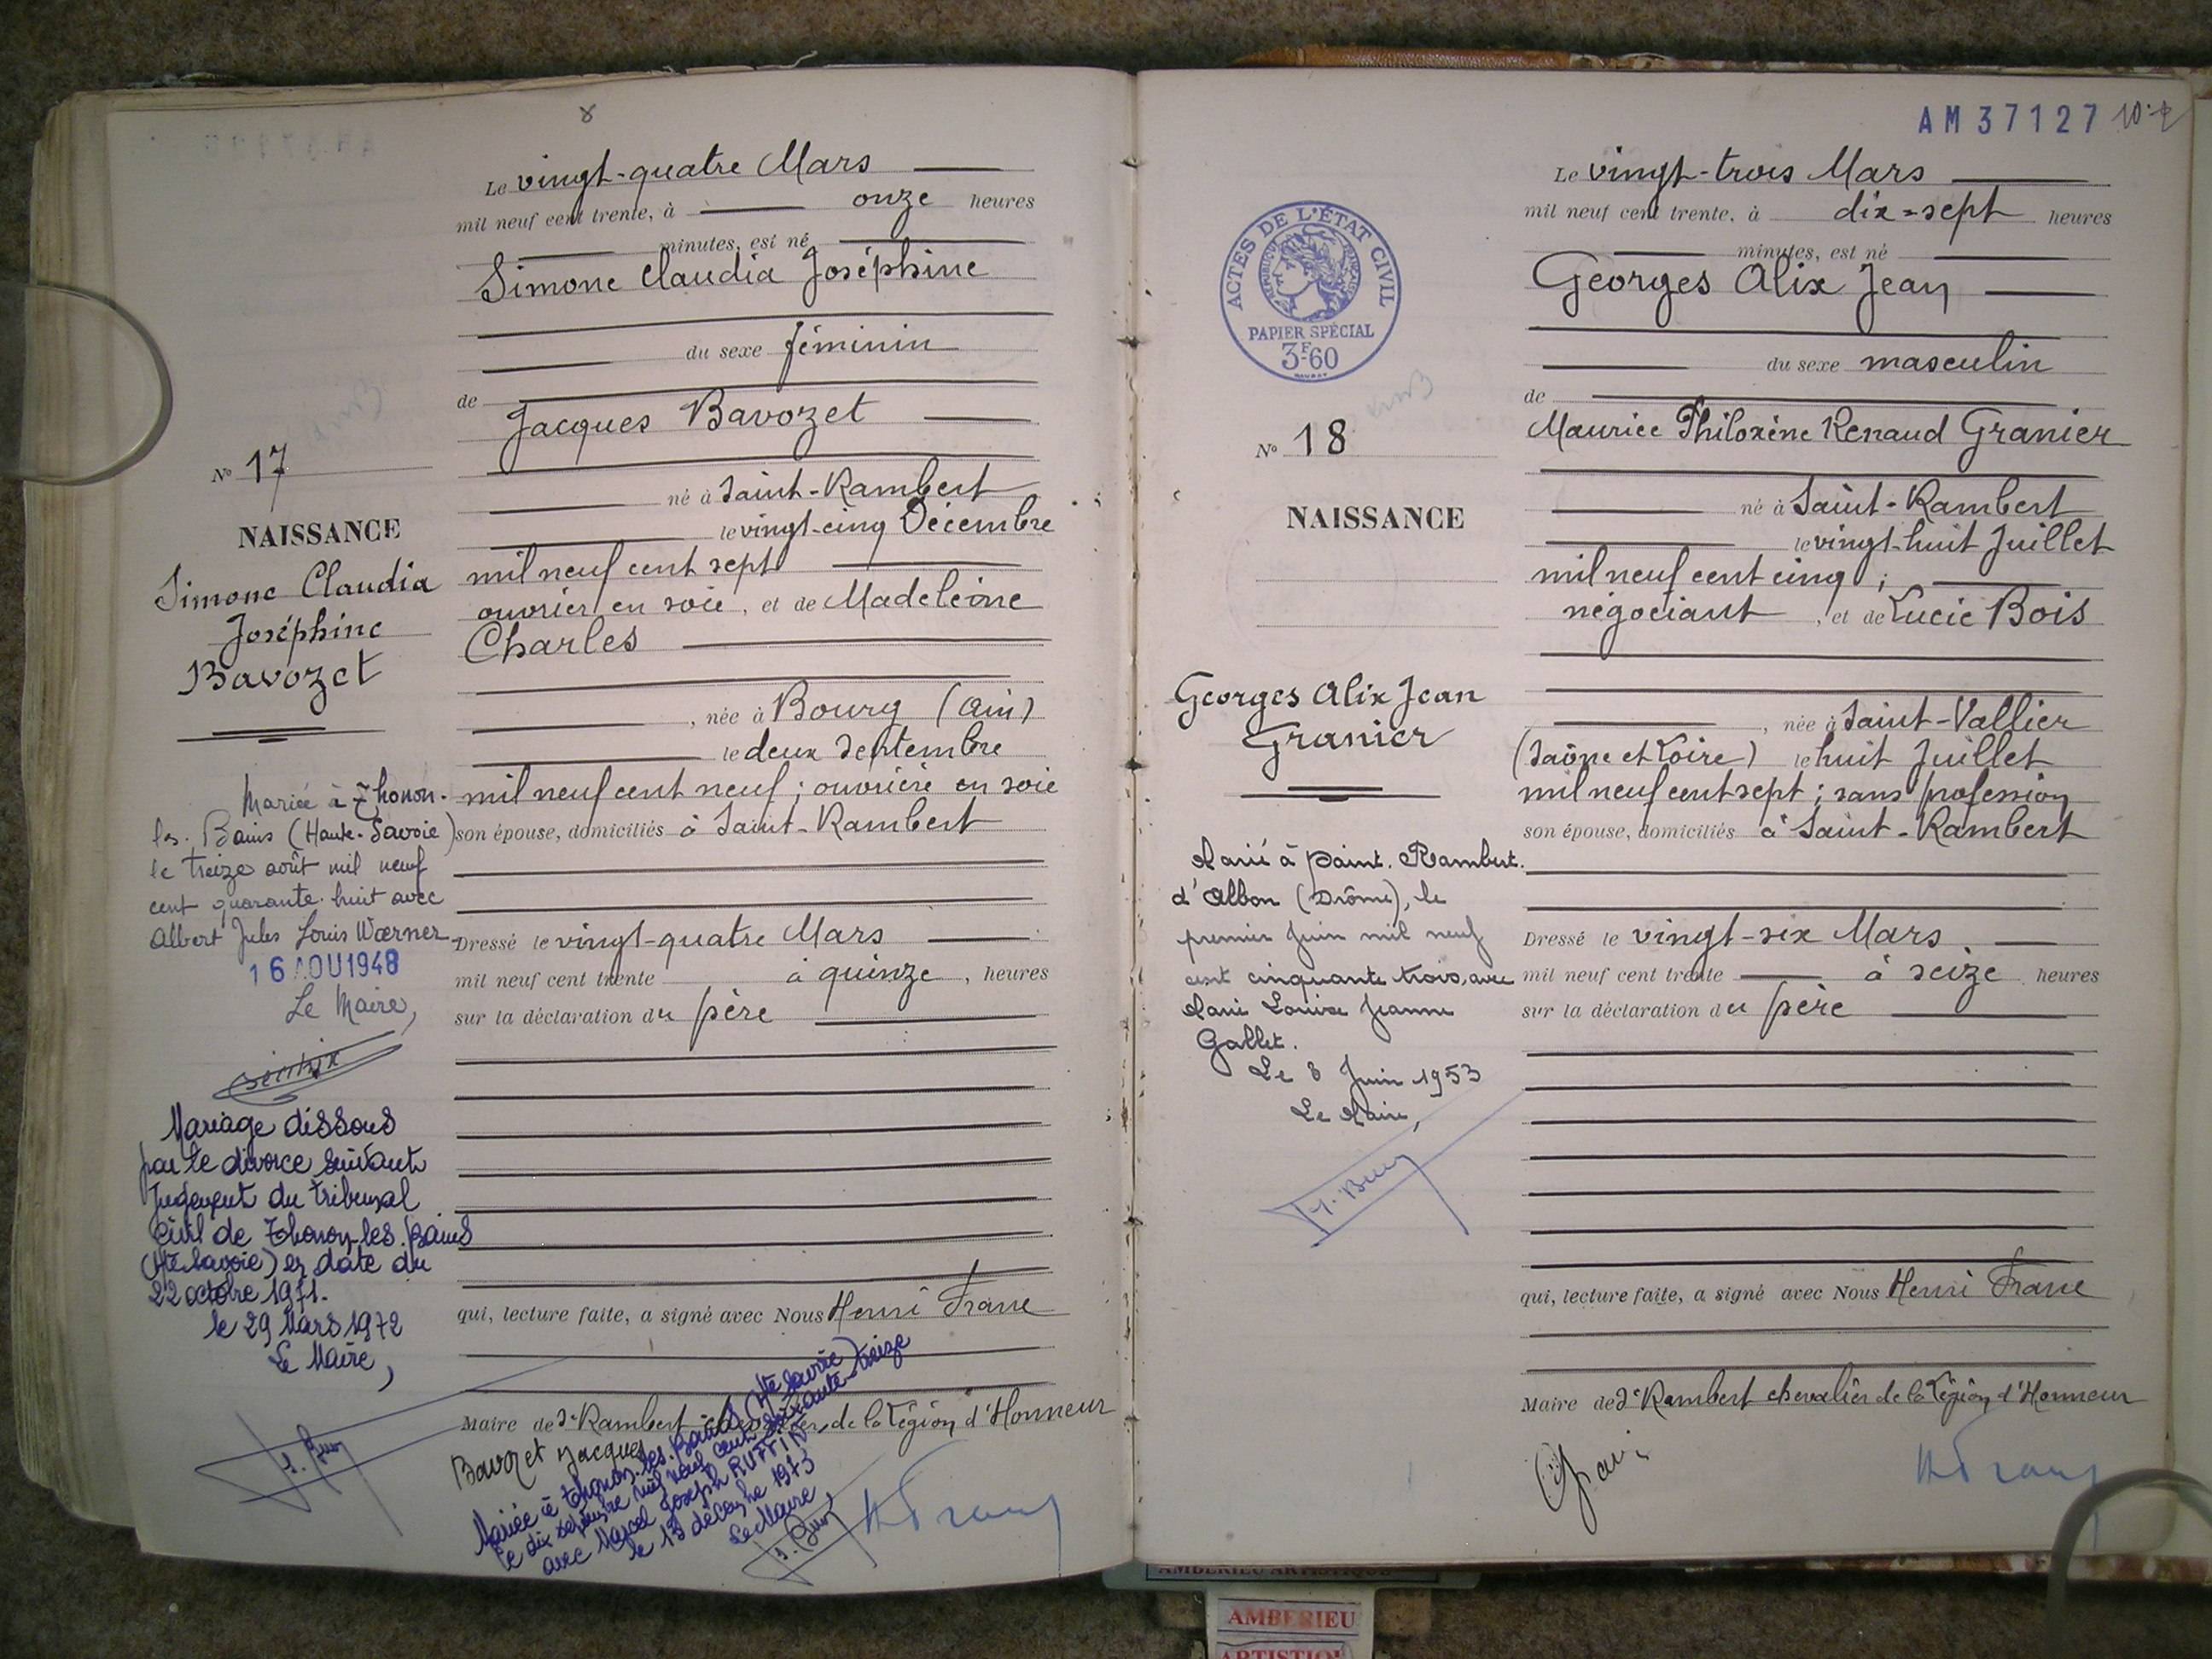 8
Le vingt-quatre Mars
mil neuf cent trente, à onze heures
minutes, est né
Simone Claudia Joséphine
du sexe féminin
de
Jacques Bavozet
né à Saint-Rambert
le vingt-cinq Décembre
mil neuf cent sept
ouvrier en soie, et de Madeleine
Charles
, née à Bourg (Ain)
le deux Septembre
mil neuf cent neuf ; ouvrière en soie
son épouse, domiciliés à Saint-Rambert
Dressé le vingt-quatre Mars
mil neuf cent trente à quinze, heures
sur la déclaration du père
qui, lecture faite, a signé avec Nous Henri Franc
Maire de St Rambert chevalier de la Légion d'Honneur
Bavozet Jacques
No 17
NAISSANCE
Simone Claudia
Joséphine
Bavozet
Mariée à Thonon-
les-Bains (Haute-Savoie)
le treize août mil neuf
cent quarante-huit avec
Albert Jules Louis Wærner
16 AOU 1948
Le Maire,
Mariage dissous
par le divorce suivant
Jugement du tribunal
Civil de Thonon-les-Bains
(Hte Savoie) en date du
22 octobre 1971.
le 29 Mars 1972
Le Maire,
Mariée à Thonon-les-Bains (Hte Savoie)
le dix septembre mil neuf cent soixante-treize
avec Marcel Joseph RUFFIN
le 13 décembre 1973
Le Maire,
AM 37127
Le vingt-trois Mars
mil neuf cent trente, à dix-sept heures
minutes, est né
Georges Alix Jean
du sexe masculin
de
Maurice Philoxène Renaud Granier
né à Saint-Rambert
le vingt-huit Juillet
mil neuf cent cinq ;
négociant, et de Lucie Bois
, née à Saint-Vallier
(Saône et Loire) le huit Juillet
mil neuf cent sept ; sans profession
son épouse, domiciliés à Saint-Rambert
Dressé le vingt-six Mars
mil neuf cent trente à seize heures
sur la déclaration du père
qui, lecture faite, a signé avec Nous Henri Franc
Maire de St Rambert chevalier de la Légion d'Honneur
ACTES DE L'ÉTAT CIVIL
RÉPUBLIQUE FRANÇAISE
PAPIER SPÉCIAL
3F60
No 18
NAISSANCE
Georges Alix Jean
Granier
Marié à Saint-Rambert
d'Albon (Drôme), le
premier Juin mil neuf
cent cinquante trois, avec
Marie Louise Jeanne
Gallet.
Le 8 Juin 1953
Le Maire,
AMBERIEU ARTISTIQUE
AMBERIEU
ARTISTIQUE